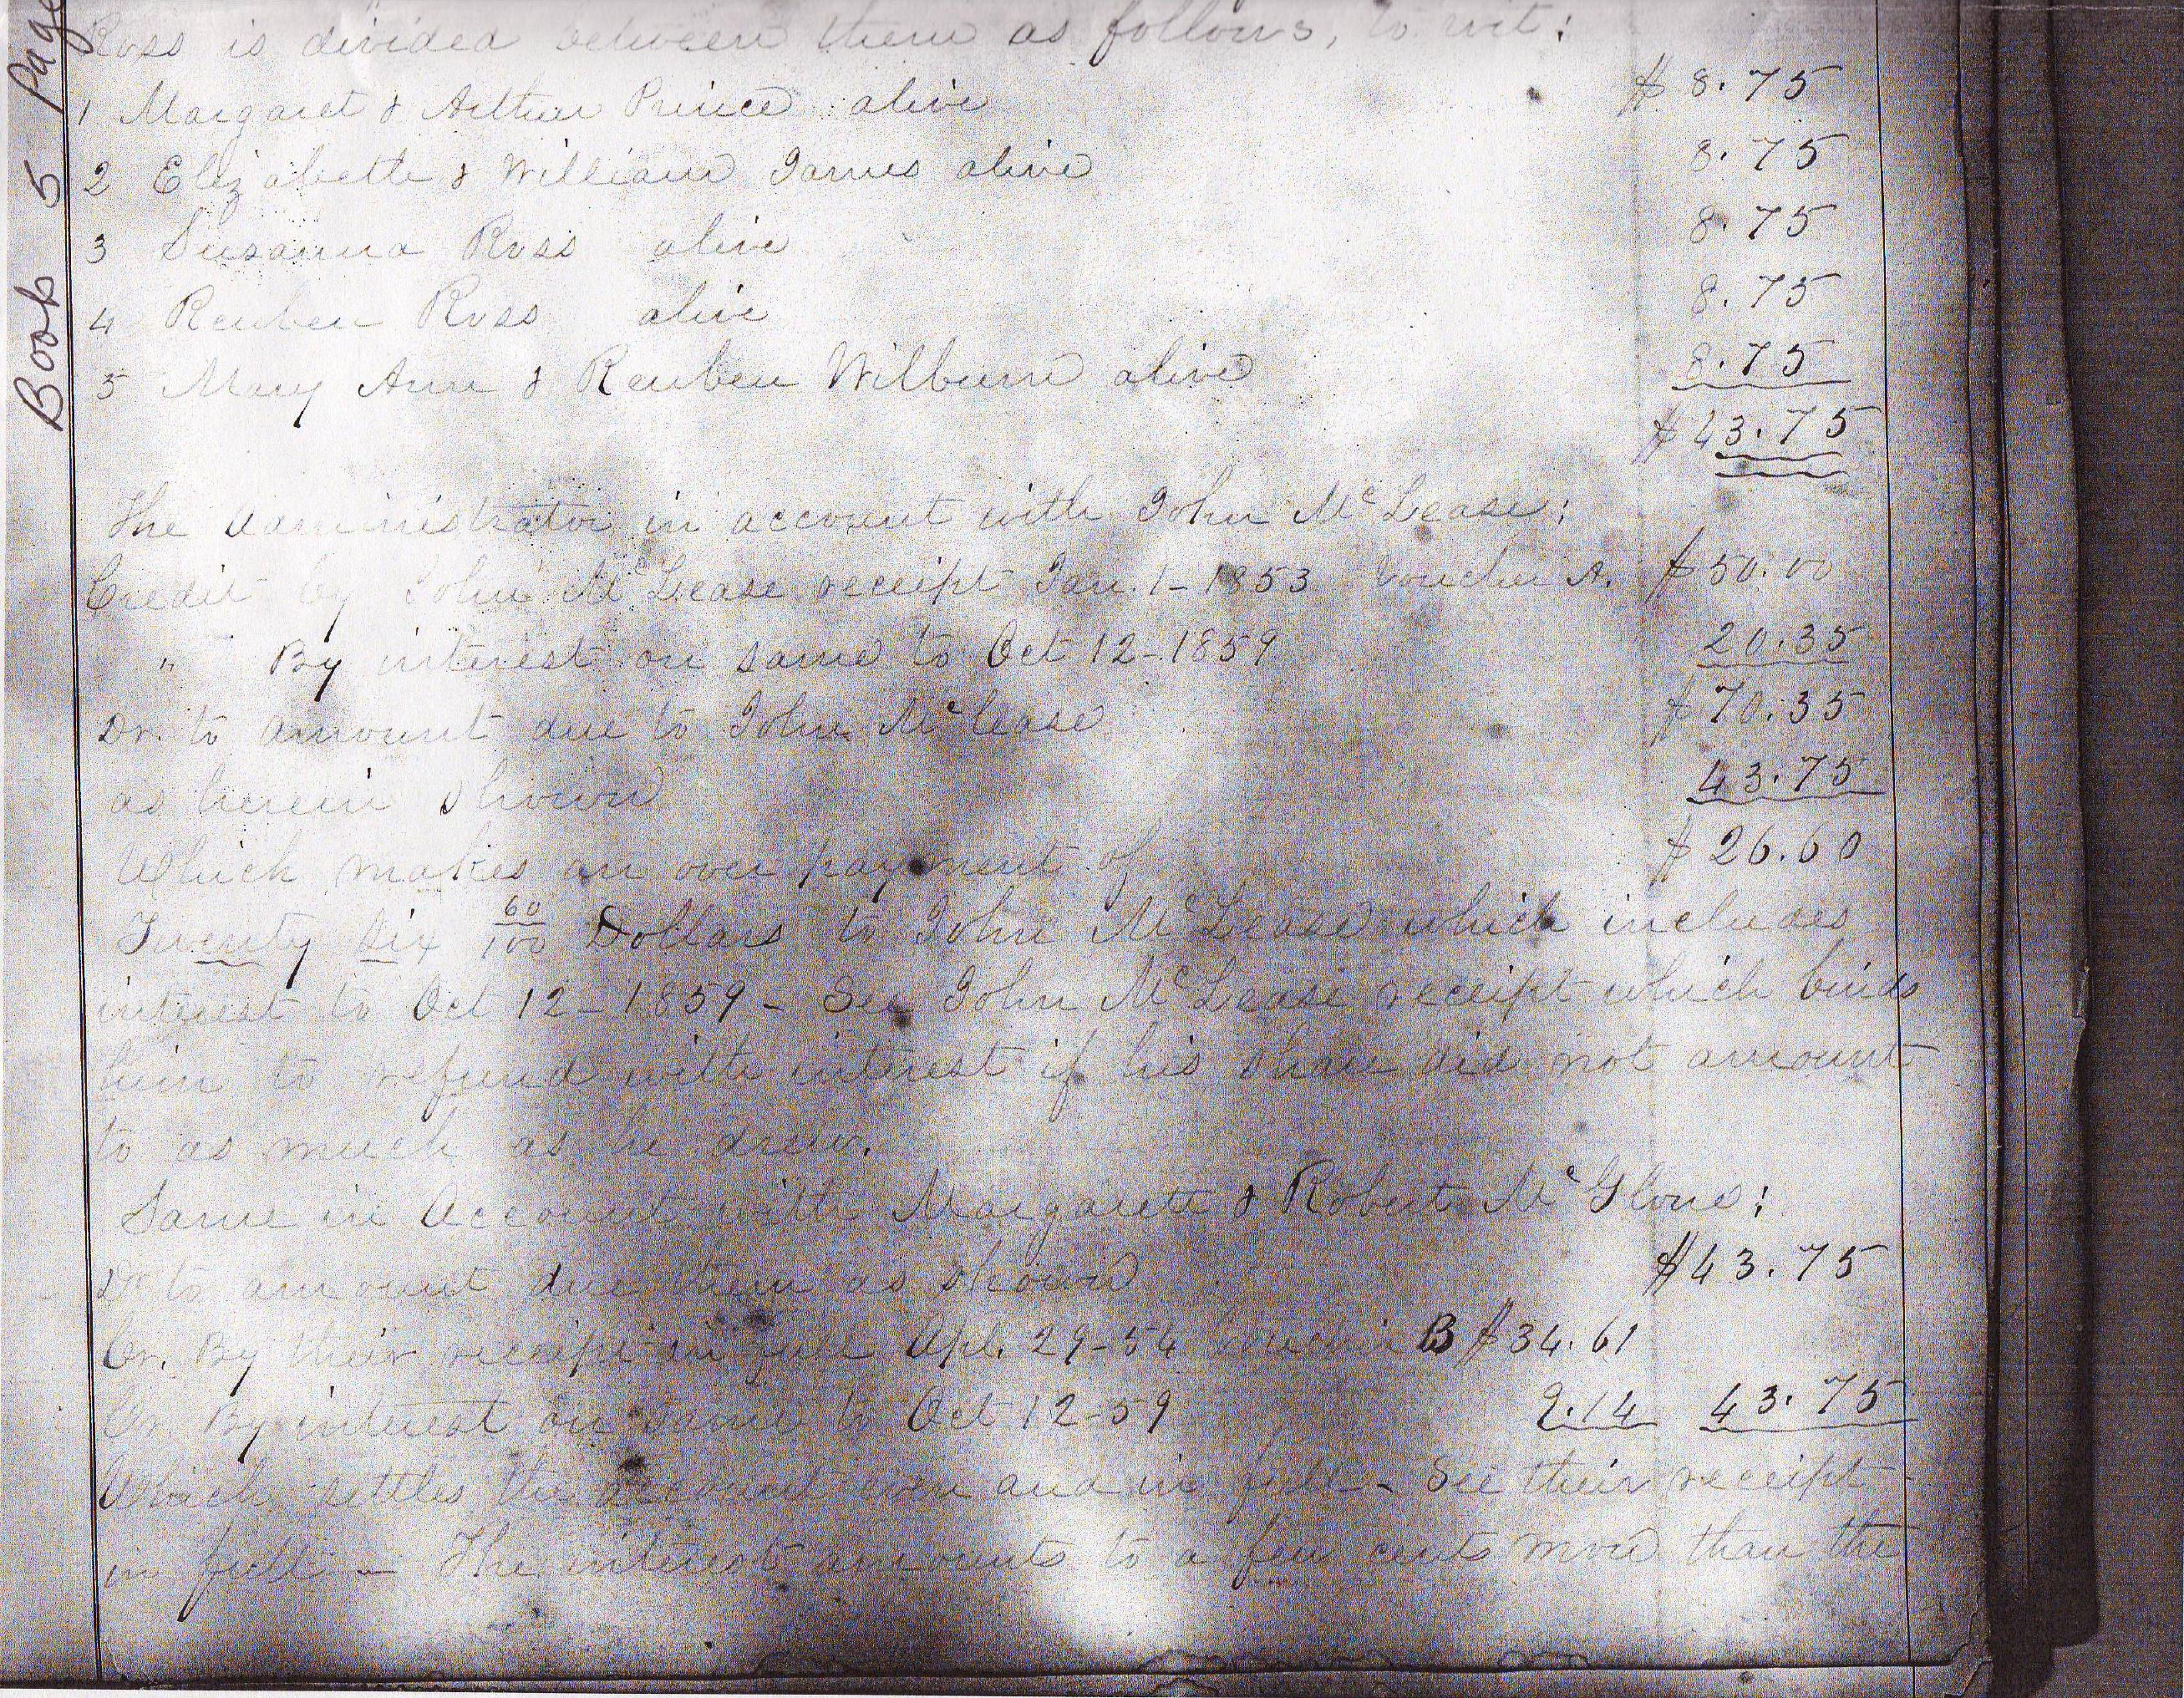 Book 5 Page
Ross is divided between them as follows, to wit:
1 Margaret & Arthur Prince alive $ 8.75
2 Elizabeth & William James alive 8.75
3 Susanna Ross alive 8.75
4 Reuben Ross alive 8.75
5 Mary Ann & Reuben Wilburn alive 8.75
$43.75
The administrator in account with John McLease:
Credit by John McLease receipt Jan. 1-1853 Voucher A. $50.00
" By interest on same to Oct 12-1859 20.35
Dr. to amount due to John McLease $70.35
as herein shown 43.75
Which makes an over payment of $26.60
Twenty Six 60/100 Dollars to John McLease which includes
interest to Oct 12-1859 - See John McLease receipt which binds
him to refund with interest if his share did not amount
to as much as he drew.
Same in Account with Margarett & Robert McGlone:
Dr to amount due them as shown $43.75
Cr. By their receipt in full Apl. 29-54 Voucher B $34.61
Cr. By interest on same to Oct 12-59 9.14 43.75
Which settles the account even and in full - See their receipt
in full - The interest amounts to a few cents more than the